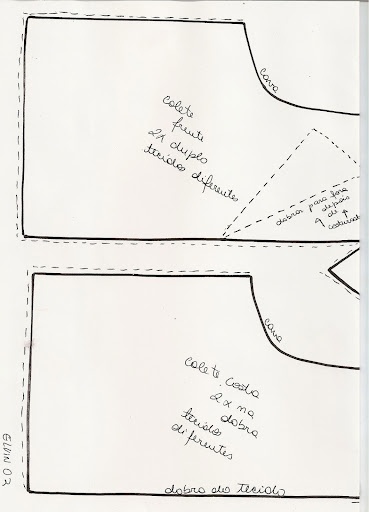 cava
colete
frente
2x duplo
tecidos diferentes
dobrar para fora
depois
de
costurado
cava
colete costa
2x na
dobra
tecidos
diferentes
dobra do tecido
ELVIN 02